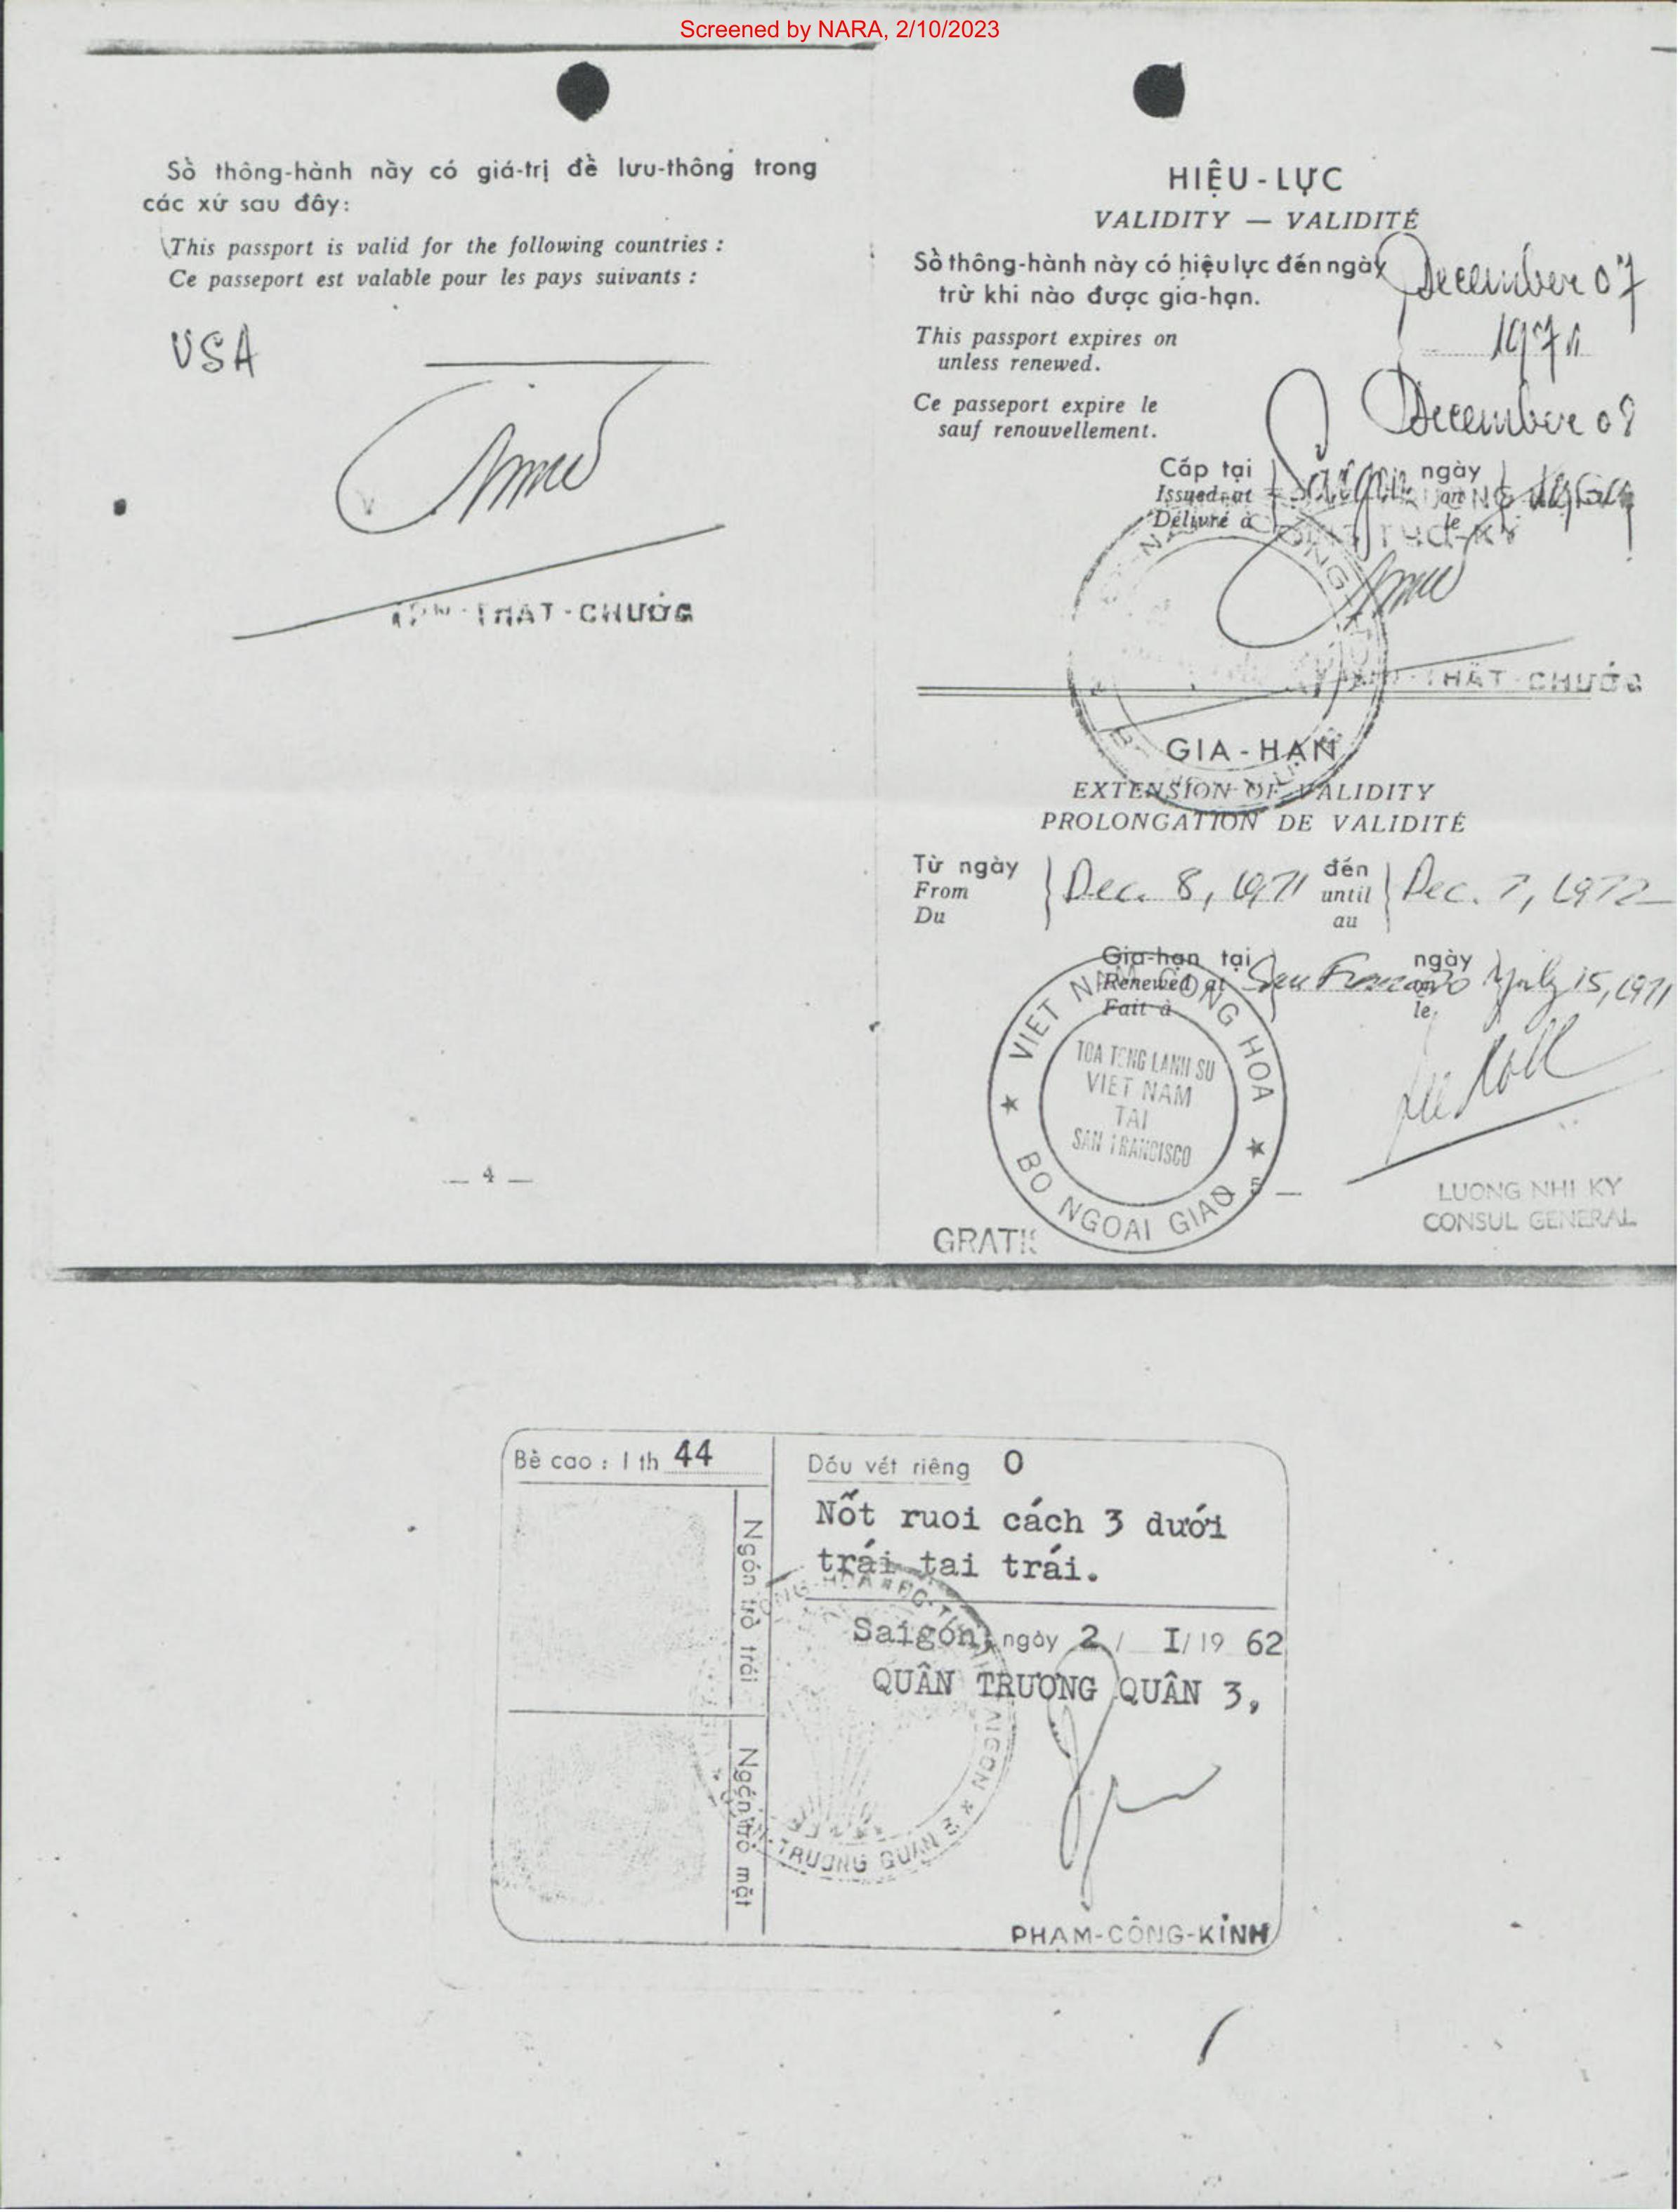 Screened by NARA, 2/10/2023
Sổ thông-hành nầy có giá-trị để lưu-thông trong
các xứ sau đây:
This passport is valid for the following countries :
Ce passeport est valable pour les pays suivants :
USA
THAT-CHƯỞG
— 4 —
HIỆU-LỰC
VALIDITY — VALIDITÉ
Sổ thông-hành này có hiệu lực đến ngày December 07
trừ khi nào được gia-hạn.
This passport expires on
unless renewed.
Ce passeport expire le
sauf renouvellement.
December 08
Cấp tại Saigon ngày
Issued at on
Délivré à le
THẤT-CHƯỞG
GIA-HẠN
EXTENSION OF VALIDITY
PROLONGATION DE VALIDITÉ
Từ ngày đến
From Dec. 8, 1971 until Dec. 7, 1972
Du au
Gia-hạn tại ngày
Renewed at San Francisco on July 15, 1971
Fait à le
VIET NAM CONG HOA
TOA TONG LANH SU
VIET NAM
TAI
SAN FRANCISCO
BO NGOAI GIAO
5 —
LUONG NHI KY
CONSUL GENERAL
GRATIS
Bề cao : 1 th 44
Dấu vết riêng 0
Nốt ruoi cách 3 dưới
trái tai trái.
Ngón trỏ trái
Ngón trỏ mặt
Saigón, ngày 2 / I/19 62
QUÂN TRƯƠNG QUÂN 3,
TRUONG QUAN 3
PHAM-CÔNG-KỈNH